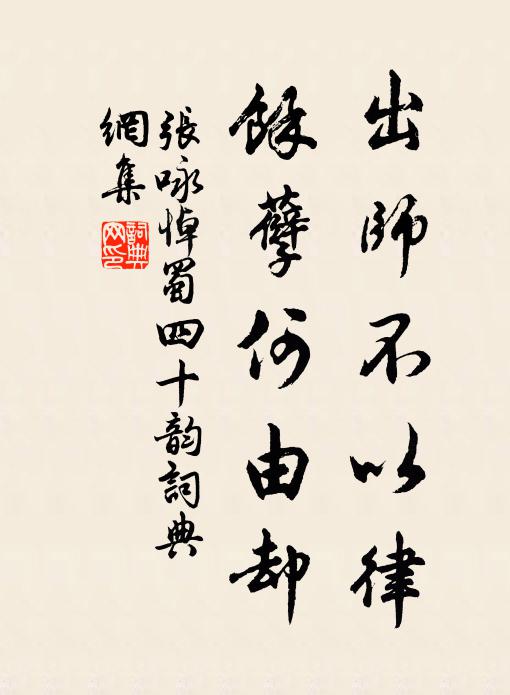 出師不以律
餘孽何由却
張咏悼蜀四十韵詞典
網集
詞典网印